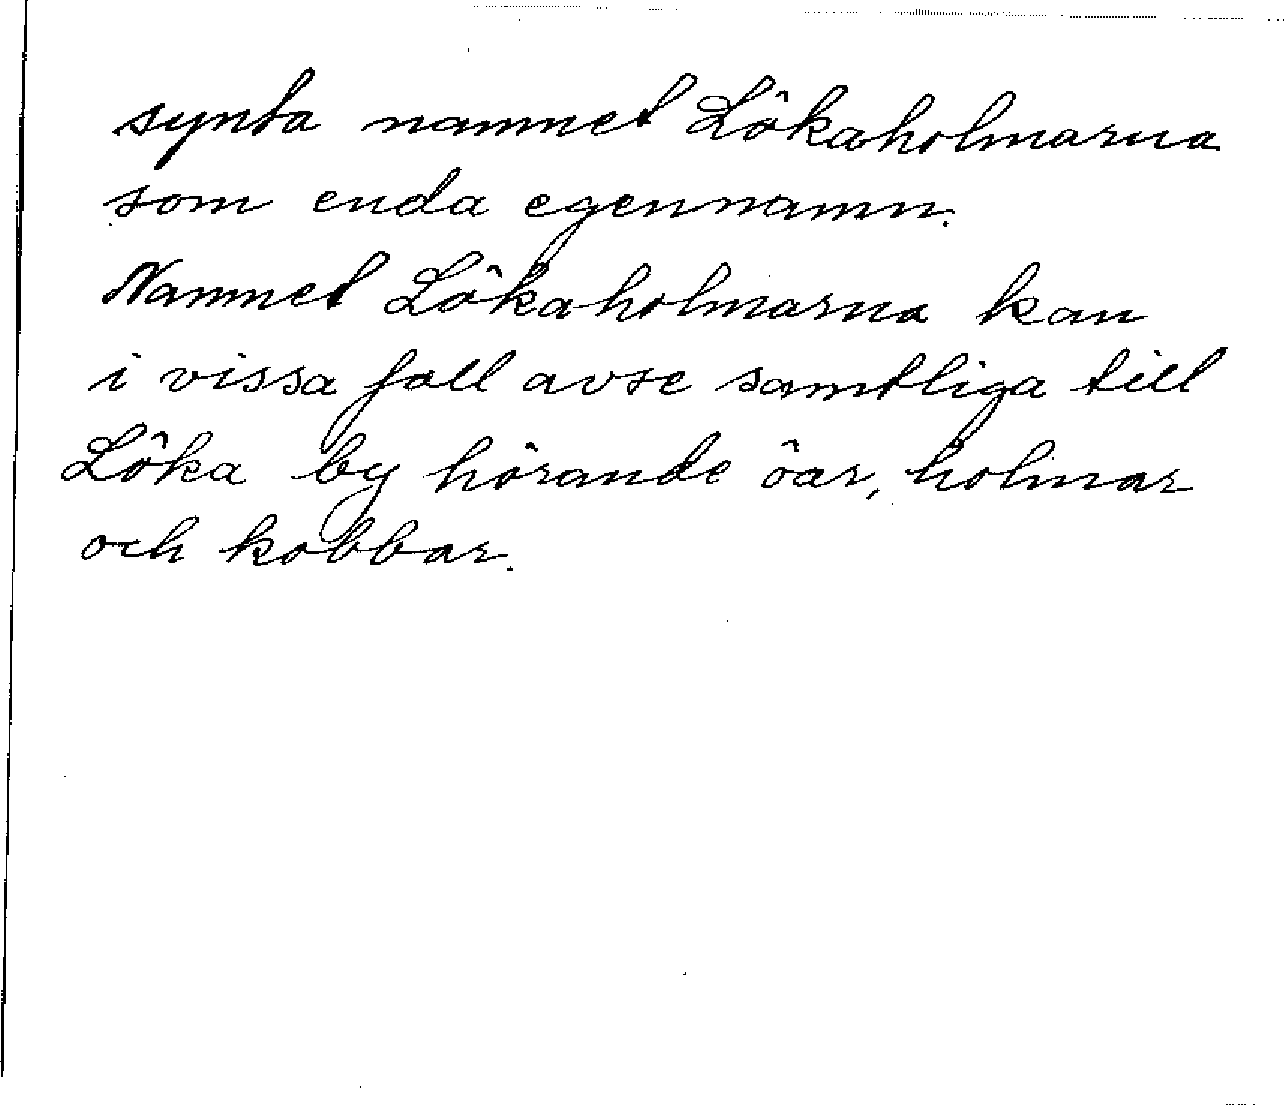 synta namnet Lökaholmarna
som enda egennamn.
Namnet Lökaholmarna kan
i vissa fall avse samtliga till
Löka by hörande öar, holmar
och kobbar.